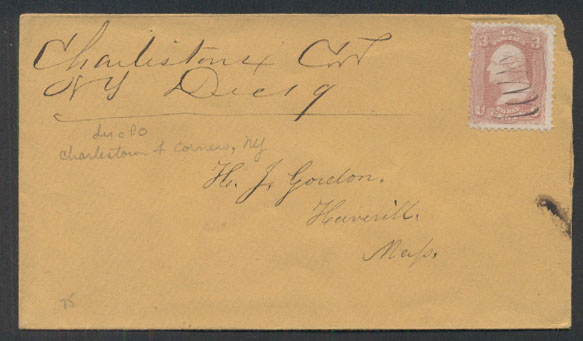 Charleston 4 Cors
NY Dec 19
dis c PO
Charlestown 4 Corners, NY
H. J. Gordon.
Haverill.
Mass.
75
3 U.S. 3